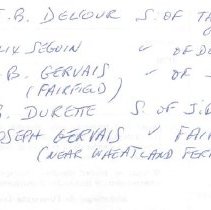 .B. DELCOUR S. OF TA
LIX SEGUIN ✓ OF DO
.B. GERVAIS ✓ OF
(FAIRFIELD)
. DURETTE S. OF J.B
OSEPH GERVAIS ✓ FAIR
(NEAR WHEATLAND FERR